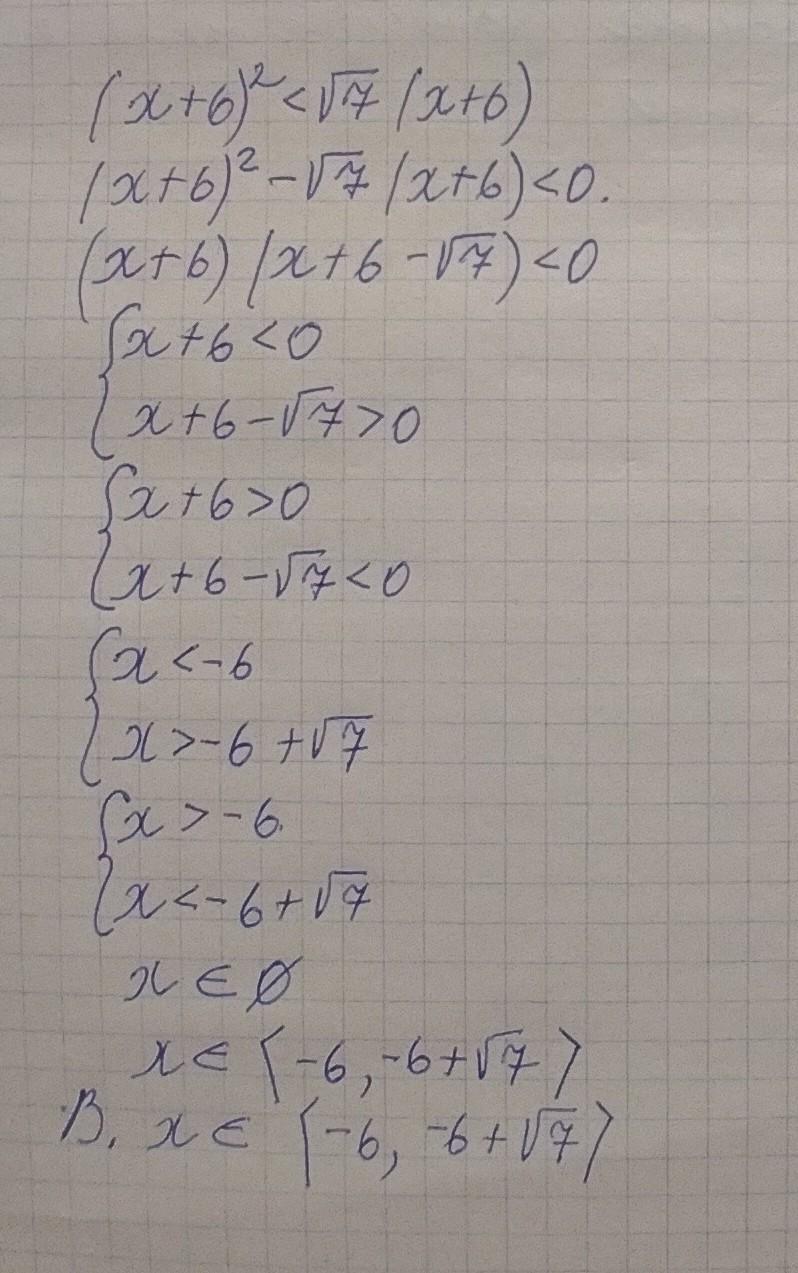 (x+6)²<√7 (x+6)
(x+6)²-√7 (x+6)<0.
(x+6) (x+6-√7)<0
{x+6<0
x+6-√7>0
{x+6>0
x+6-√7<0
{x<-6
x>-6+√7
{x>-6.
x<-6+√7
x∈∅
x∈⟨-6,-6+√7⟩
В. x∈⟨-6, -6+√7⟩